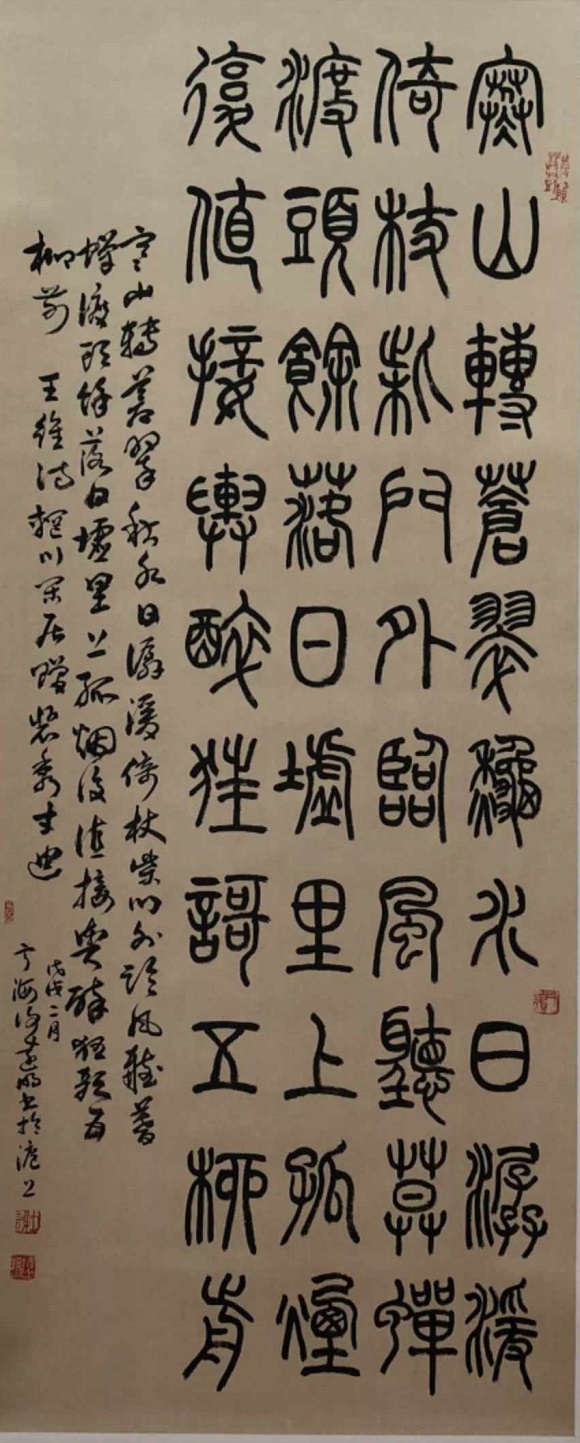 寒山轉蒼翠秋水日潺湲
倚杖柴門外臨風聽莫蟬
渡頭餘落日墟里上孤煙
復值接輿醉狂謌五柳前
寒山轉蒼翠秋水日潺湲倚杖柴門外臨風聽暮
蟬渡頭餘落日墟里上孤烟復值接輿醉狂歌五
柳前 王維詩輞川閑居贈裴秀才迪
戊戌二月
寧海 書於滬上